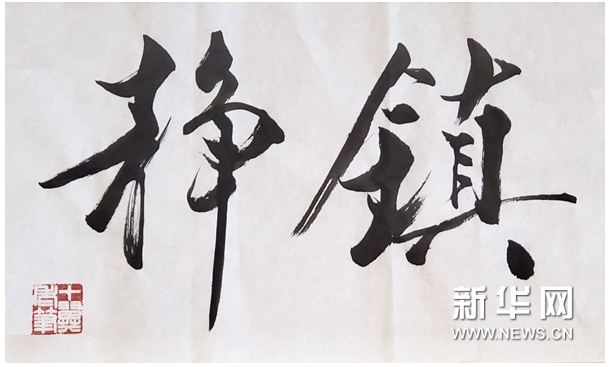 鎮静
新华网
WWW.NEWS.CN